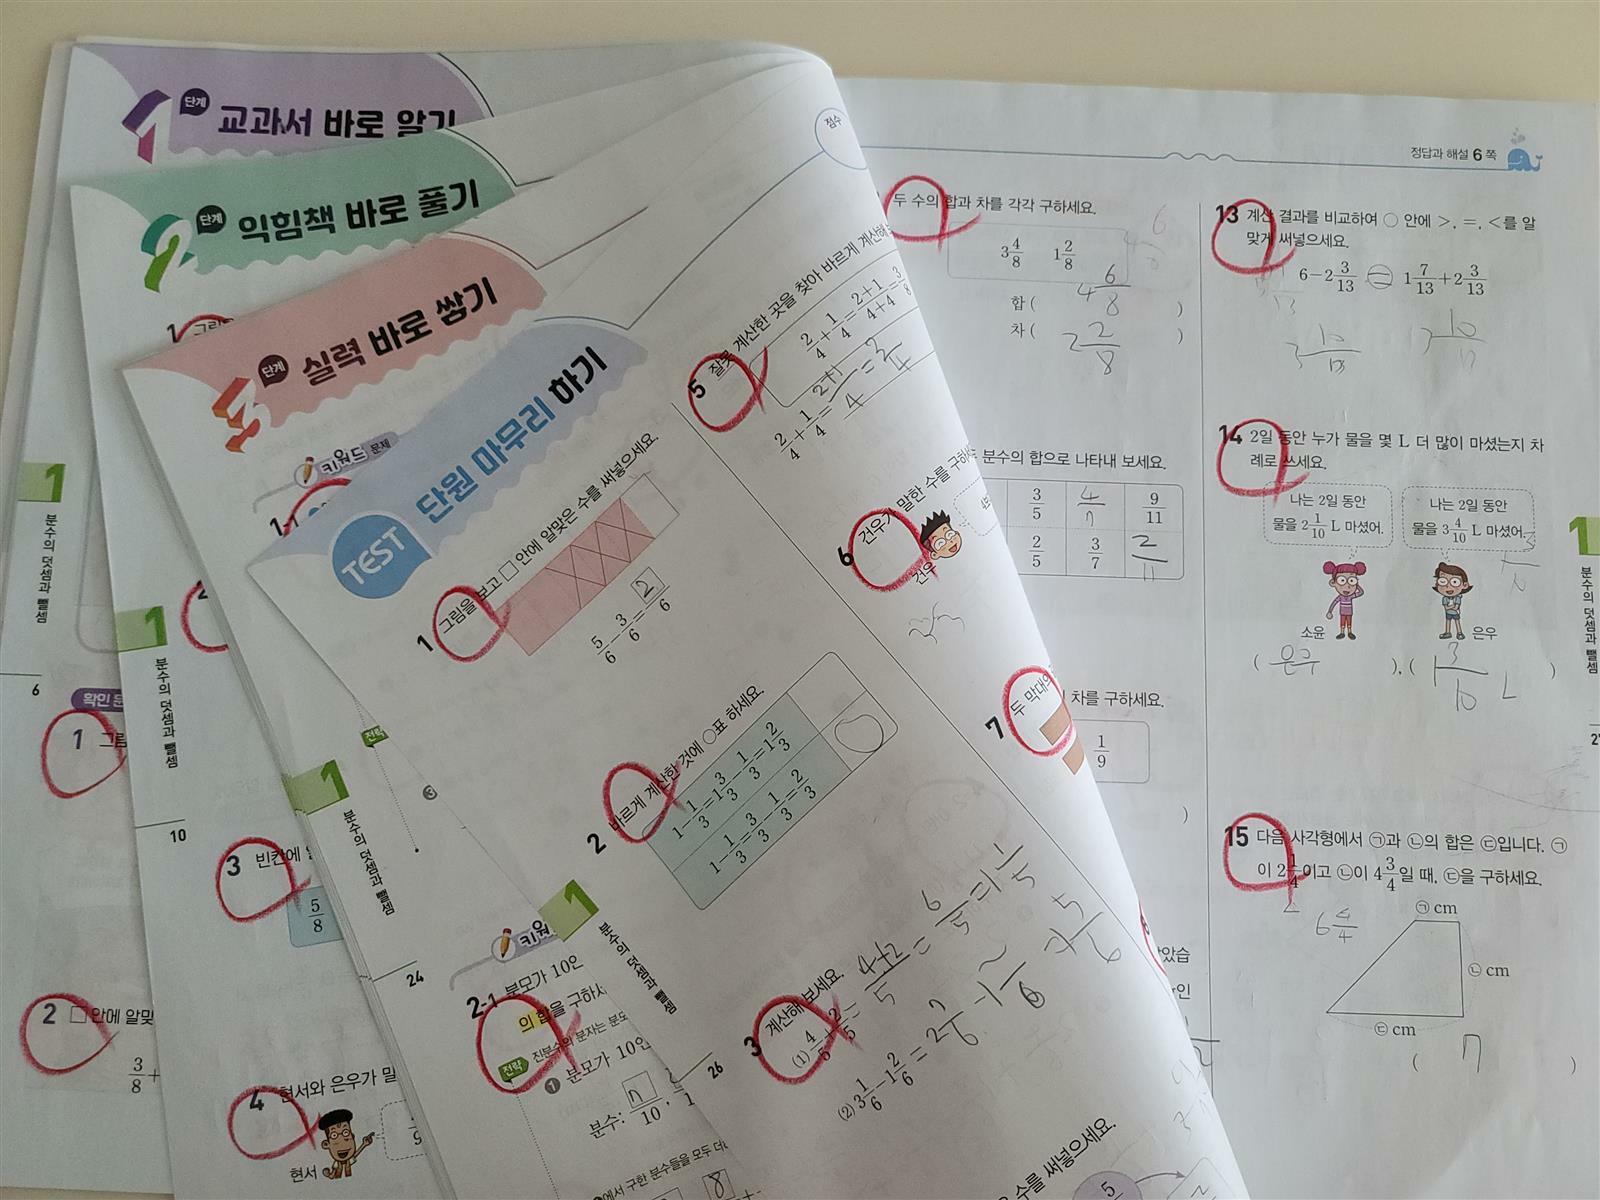 1 단계 교과서 바로 알기
2 단계 익힘책 바로 풀기
3 단계 실력 바로 쌓기
키워드 문제
1-1
TEST 단원 마무리 하기
점수
1 그림을 보고 □ 안에 알맞은 수를 써넣으세요.
5/6 - 3/6 = 2/6
2 바르게 계산한 것에 ○표 하세요.
1 - 1/3 = 1 3/3 - 1/3 = 1 2/3
1 - 1/3 = 3/3 - 1/3 = 2/3
3 계산해 보세요.
(1) 4/5 + 2/5 = 4+2/5 = 6/5 = 1 1/5
(2) 3 1/6 - 1 2/6 = 2 7/6 - 1 2/6 = 1 5/6
수를 써넣으세요.
5 잘못 계산한 곳을 찾아 바르게 계산해
2/4 + 1/4 = 2+1/4+4 = 3/8
2/4 + 1/4 = 2+1/4 = 3/4
6 건우가 말한 수를 구하
건우
7 두 막대의
정답과 해설 6쪽
두 수의 합과 차를 각각 구하세요.
3 4/8 1 2/8
합 ( 4 6/8 )
차 ( 2 2/8 )
분수의 합으로 나타내 보세요.
3/5 4/7 9/11
2/5 3/7 2/11
차를 구하세요.
1/9
13 계산 결과를 비교하여 ○ 안에 >, =, <를 알
맞게 써넣으세요.
6 - 2 3/13 = 1 7/13 + 2 3/13
3 10/13
14 2일 동안 누가 물을 몇 L 더 많이 마셨는지 차
례로 쓰세요.
나는 2일 동안
물을 2 1/10 L 마셨어.
나는 2일 동안
물을 3 4/10 L 마셨어.
소윤
은우
( 은우 ), ( 1 3/10 L )
15 다음 사각형에서 ㉠과 ㉡의 합은 ㉢입니다. ㉠
이 2 1/4이고 ㉡이 4 3/4일 때, ㉢을 구하세요.
6 4/4
㉠ cm
㉡ cm
㉢ cm
( 7 )
1
분수의 덧셈과 뺄셈
6
확인 문
1 그림
2 □ 안에 알맞
3/8 +
1
분수의 덧셈과 뺄셈
10
3 빈칸에
5/8
4 현서와 은우가 말
현서
1
분수의 덧셈과 뺄셈
24
전략
키워
2-1 분모가 10인
의 합을 구하시
전략 진분수의 분자는 분모
1 분모가 10인
분수: /10,
에서 구한 분수들을 모두 더
8
1
분수의 덧셈과 뺄셈
26
1
분수의 덧셈과 뺄셈